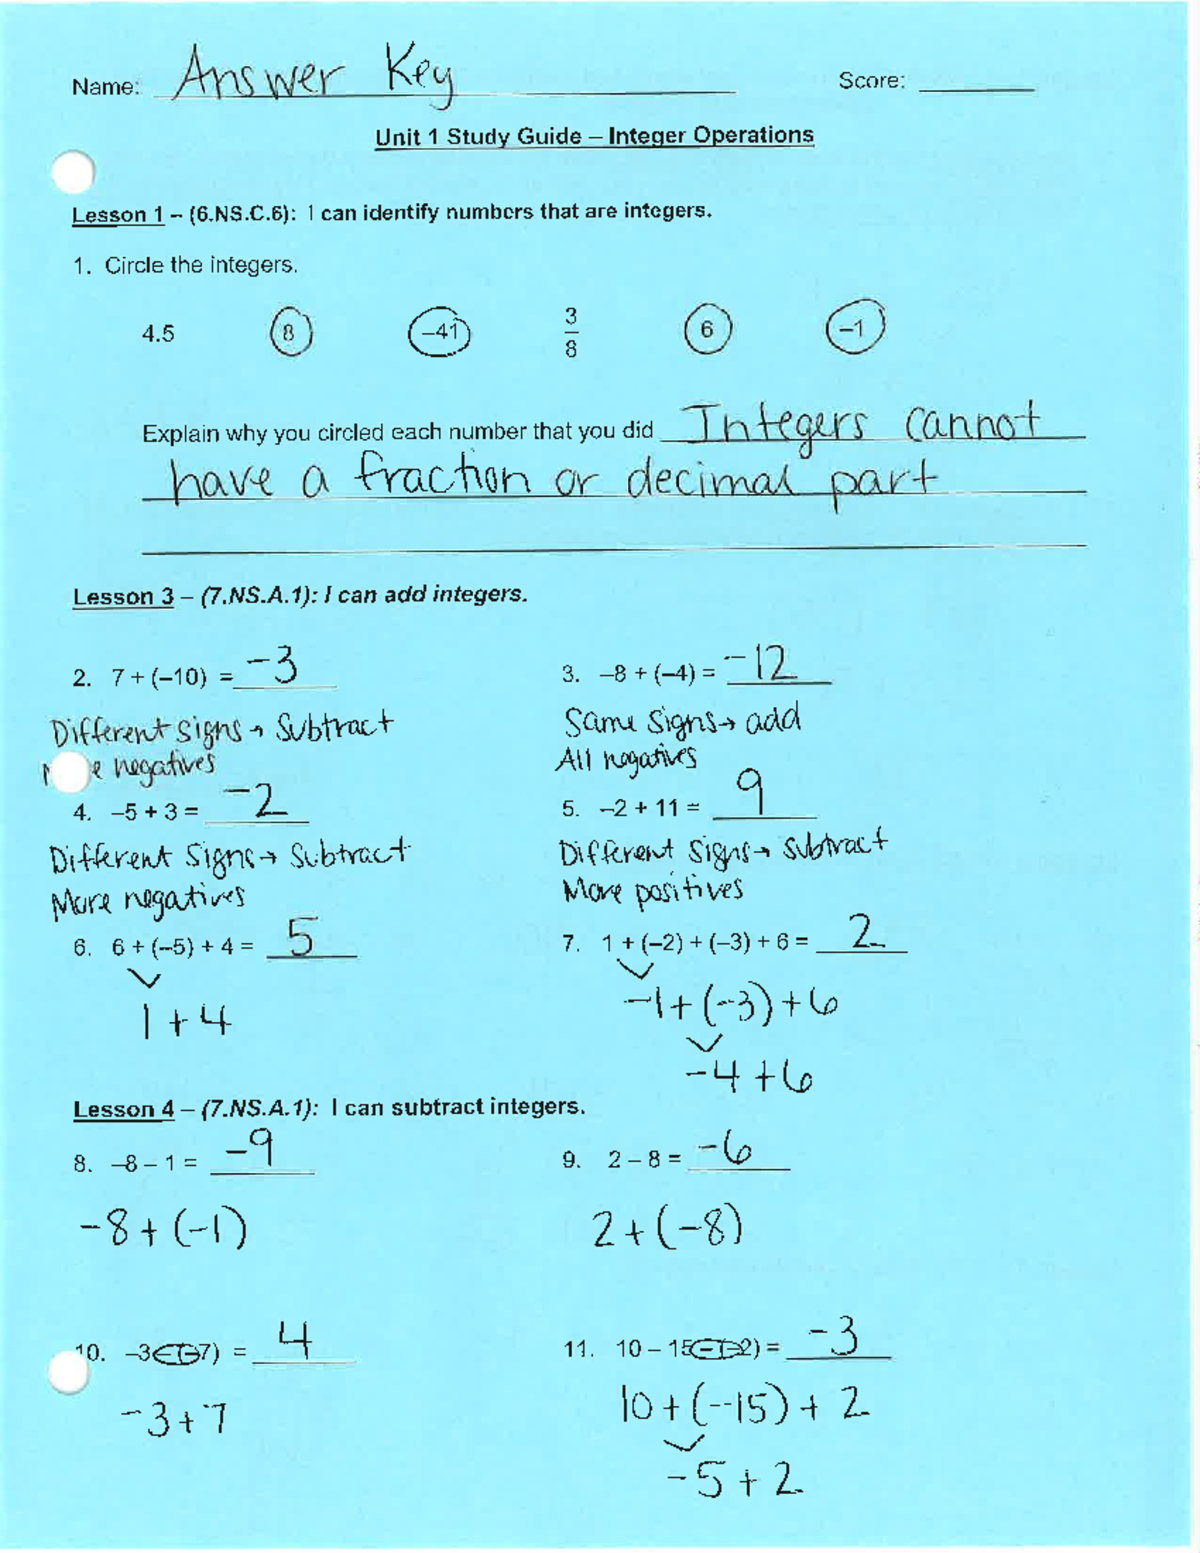 Name: Answer Key Score:
Unit 1 Study Guide – Integer Operations
Lesson 1 – (6.NS.C.6): I can identify numbers that are integers.
1. Circle the integers.
4.5 8 –41 3/8 6 –1
Explain why you circled each number that you did Integers cannot
have a fraction or decimal part
Lesson 3 – (7.NS.A.1): I can add integers.
2. 7 + (–10) = -3 3. –8 + (–4) = -12
Different signs → Subtract Same signs → add
negatives All negatives
4. –5 + 3 = -2 5. –2 + 11 = 9
Different signs → Subtract Different signs → subtract
More negatives More positives
6. 6 + (–5) + 4 = 5 7. 1 + (–2) + (–3) + 6 = 2
1 + 4 -1 + (-3) + 6
-4 + 6
Lesson 4 – (7.NS.A.1): I can subtract integers.
8. –8 – 1 = -9 9. 2 – 8 = -6
-8 + (-1) 2 + (-8)
10. –3 – (–7) = 4 11. 10 – 15 – (–2) = -3
-3 + 7 10 + (-15) + 2
-5 + 2